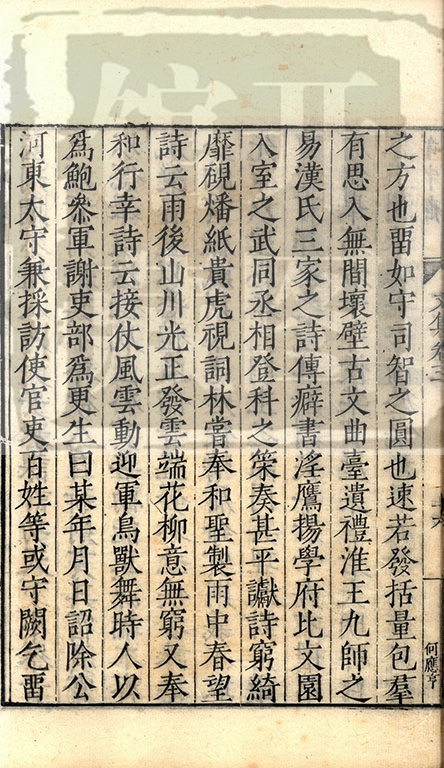 之方也畱如守司智之圓也速若發括量包羣
有思入無間壞壁古文曲臺遺禮淮王九師之
易漢氏三家之詩傳癖書淫鷹揚學府比文園
入室之武同丞相登科之策奏甚平讞詩窮綺
靡硯燔紙貴虎視詞林嘗奉和聖製雨中春望
詩云雨後山川光正發雲端花柳意無窮又奉
和行幸詩云接仗風雲動迎軍鳥獸舞時人以
爲鮑叅軍謝吏部爲更生曰某年月日詔除公
河東太守兼採訪使官吏百姓等或守闕乞畱
何應亨